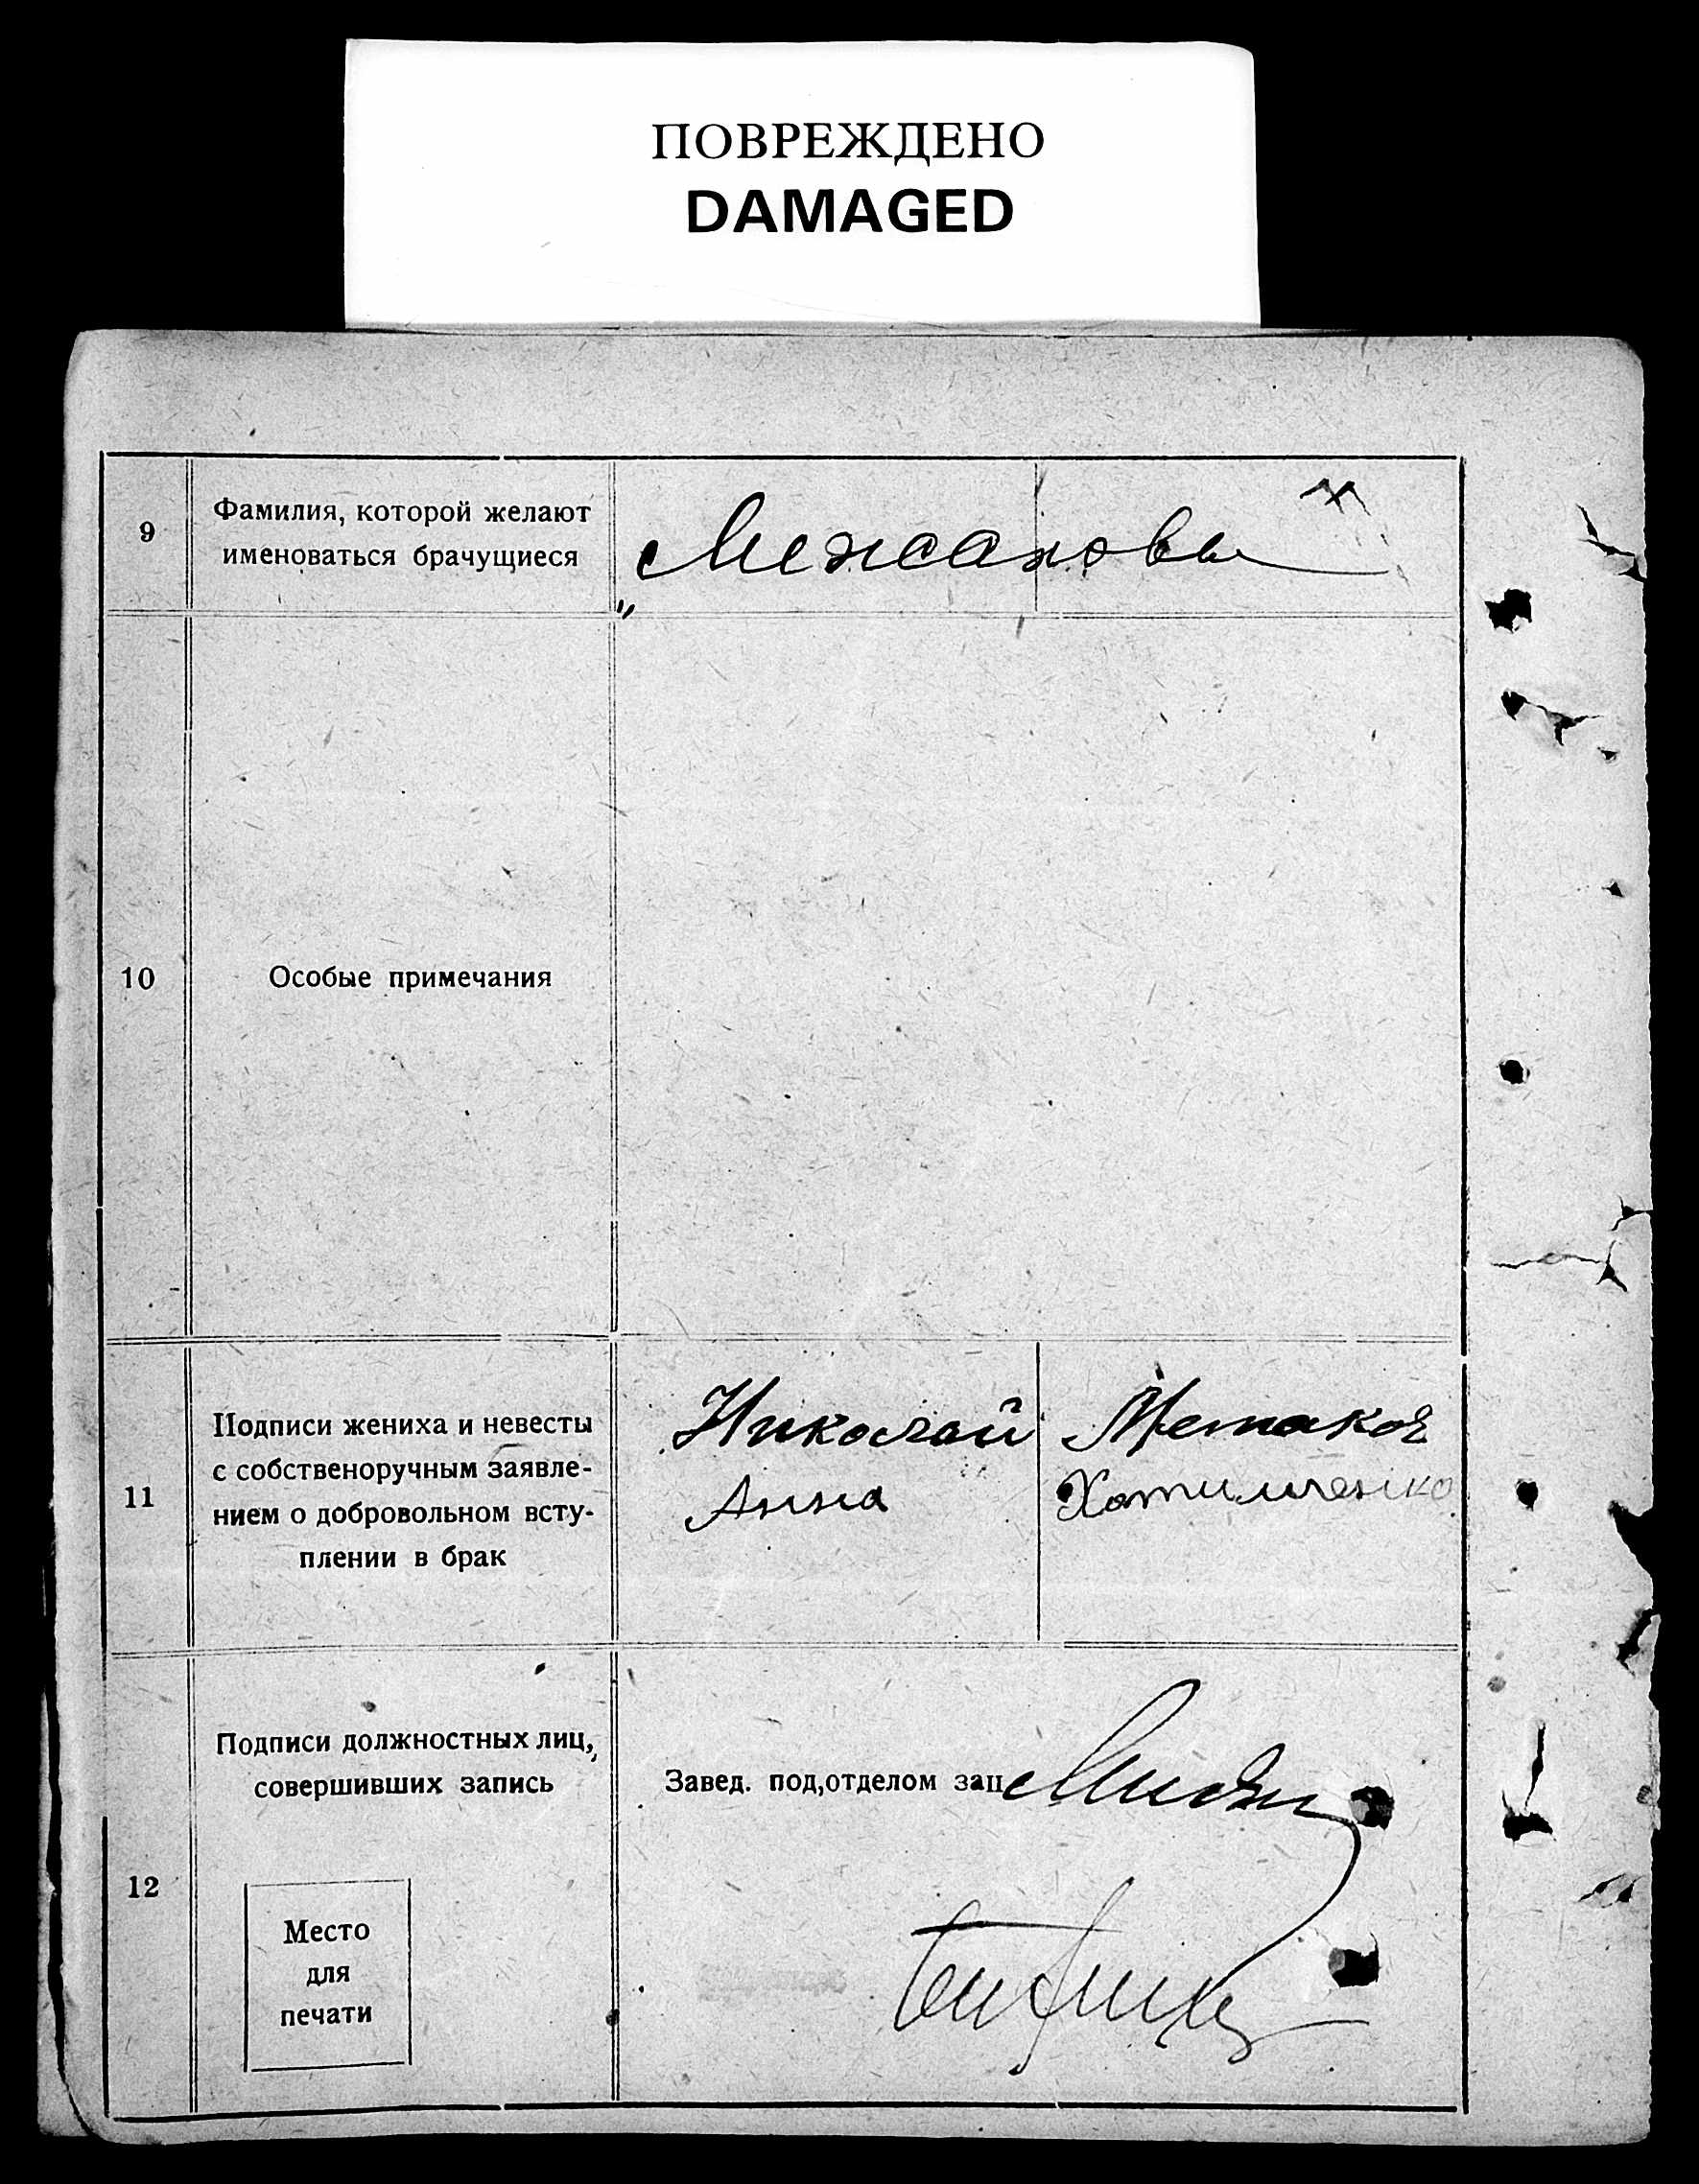 ПОВРЕЖДЕНО
DAMAGED
9
Фамилия, которой желают
именоваться брачущиеся
10
Особые примечания
11
Подписи жениха и невесты
с собственоручным заявле-
нием о добровольном всту-
плении в брак
Николай
Анна Хотимченко
12
Подписи должностных лиц,
совершивших запись
Завед. под,отделом зац
Место
для
печати